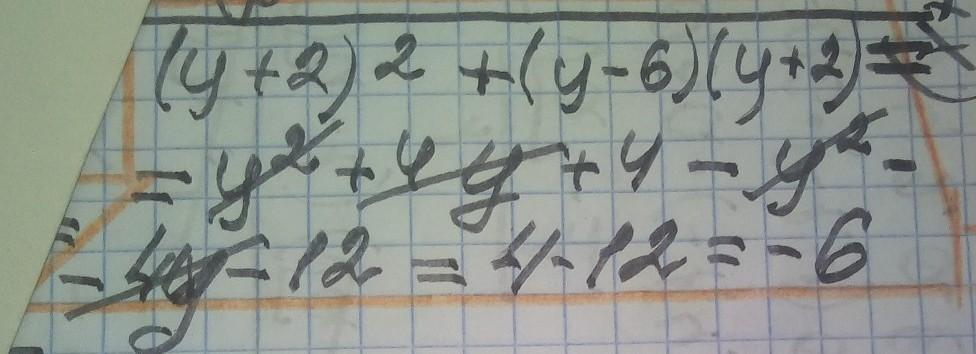 (y+2)2 +(y-6)(y+2)=
= y² +4y +4 - y² -
- 4y - 12 = 4-12 = -6